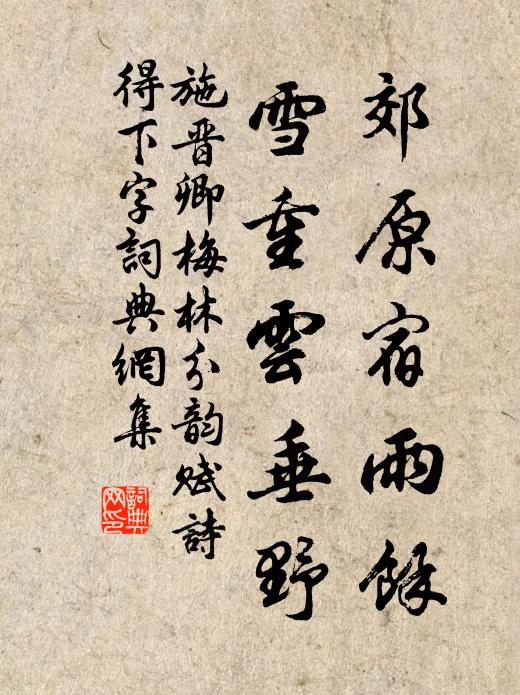 郊原宿雨餘
雪重雲垂野
施晋卿梅林分韵賦詩
得下字詞典網集
詞典
网印